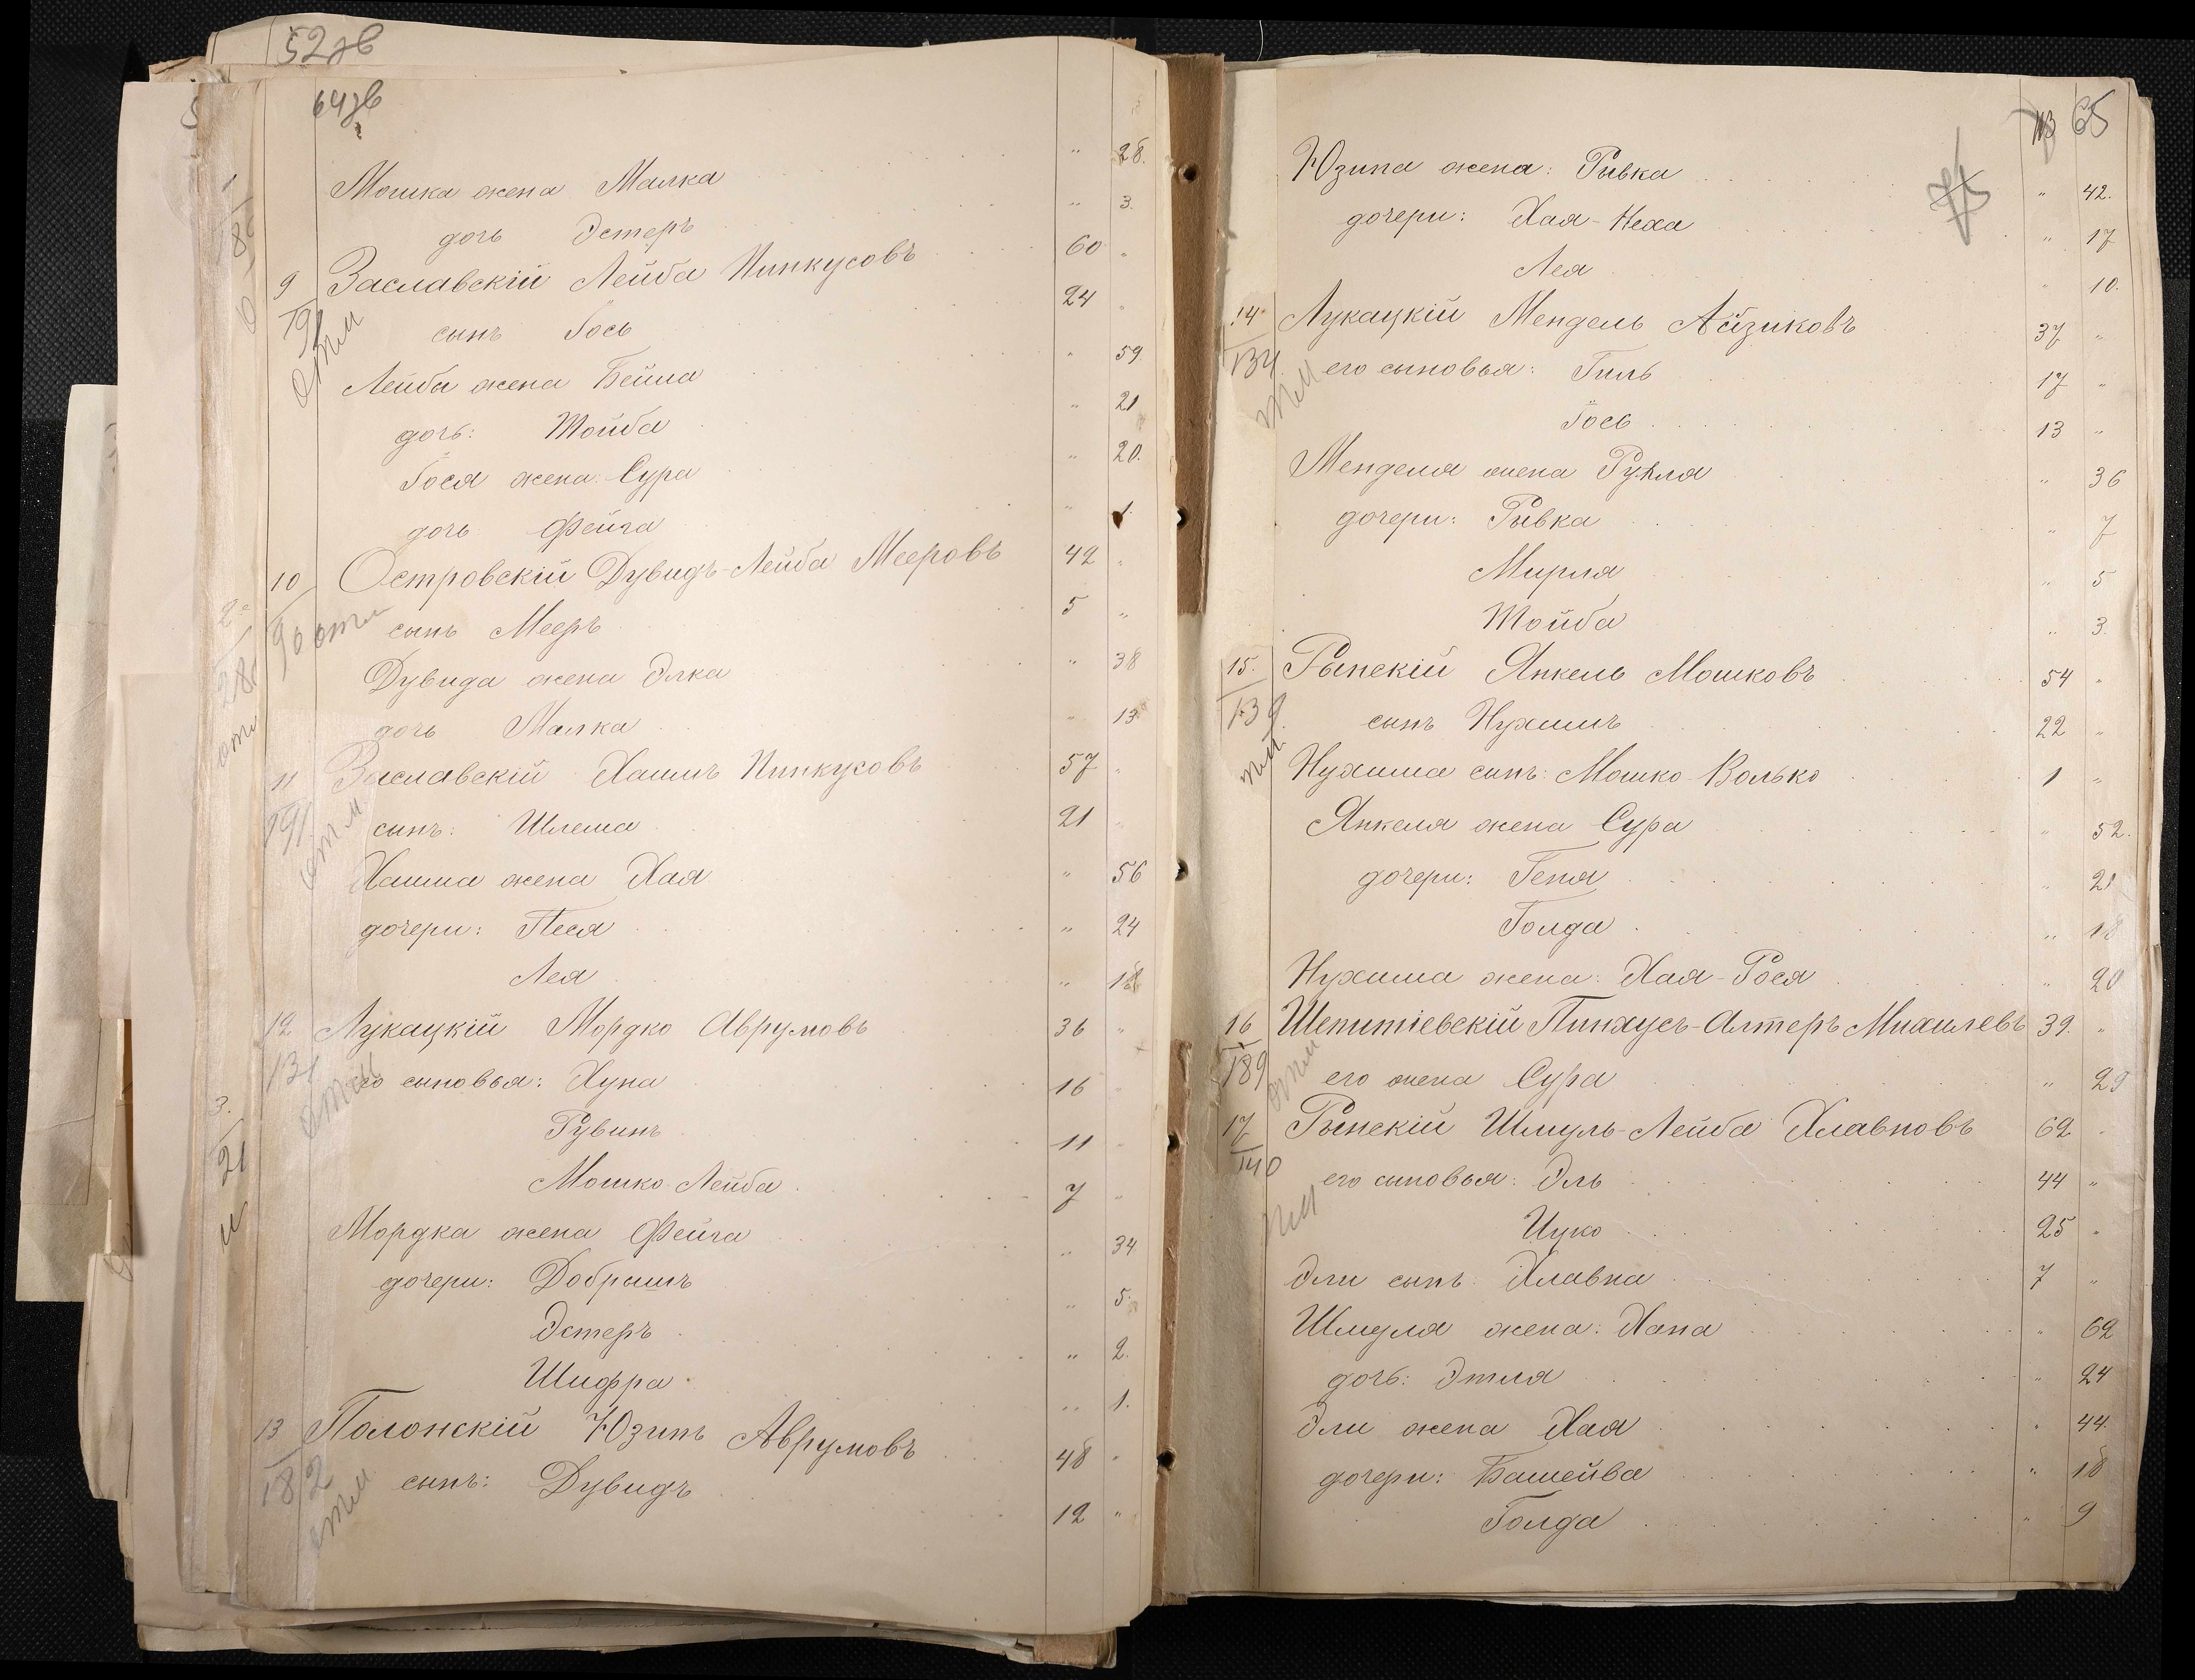 52 зв
64 зв
Мошка жена Малка " 28.
дочь Эстеръ " 3.
9 Заславскій Лейба Пинкусовъ 60 "
191 сынъ Іось 24 "
отм
Лейба жена Бейла " 59
дочь: Тойба " 21
Іося жена: Сура " 20.
дочь Фейга " 1.
10 Островскій Дувидъ-Лейба Мееровъ 42 "
90 отм сынъ Мееръ 5 "
Дувида жена Элка " 38
дочь Малка " 13
11 Заславскій Хаимъ Пинкусовъ 57 "
191 сынъ: Шлема 21 "
отм
Хаима жена Хая " 56
дочери: Песя " 24
Лея " 18
12 Лукацкій Мордко Аврумовъ 36 "
131 его сыновья: Хуна 16 "
отм
Рувинъ 11 "
Мошко-Лейба 7 "
Мордка жена Фейга " 34
дочери: Добрышъ " 5.
Эстеръ " 2.
Шифра " 1.
13 Полонскій Юзипъ Аврумовъ 48 "
182 сынъ: Дувидъ 12 "
отм
65
Юзипа жена: Рывка " 42.
дочери: Хая-Неха " 17
Лея " 10.
14 Лукацкій Мендель Айзиковъ 37 "
134 его сыновья: Гиль 17 "
Іось 13 "
Менделя жена Рухля " 36
дочери: Рывка " 7
Мирля " 5
Тойба " 3.
15. Рынскій Янкель Мошковъ 54 "
139 сынъ Нухимъ 22 "
Нухима сынъ: Мошко-Волько 1 "
Янкеля жена Сура " 52.
дочери: Геня " 21
Голда " 18
Нухима жена: Хая-Рося " 20
16 Шепитіевскій Пинхусъ-Алтеръ Михилевъ 39. "
189 его жена Сура " 29
отм
17 Рынскій Шмуль-Лейба Хлавновъ 62 "
140 его сыновья: Эль 44 "
Ицко 25 "
Эли сынъ: Хлавна 7 "
Шмуля жена: Хана " 62
дочь: Этля " 24
Эли жена Хая " 44.
дочери: Башейва " 18
Голда " 9